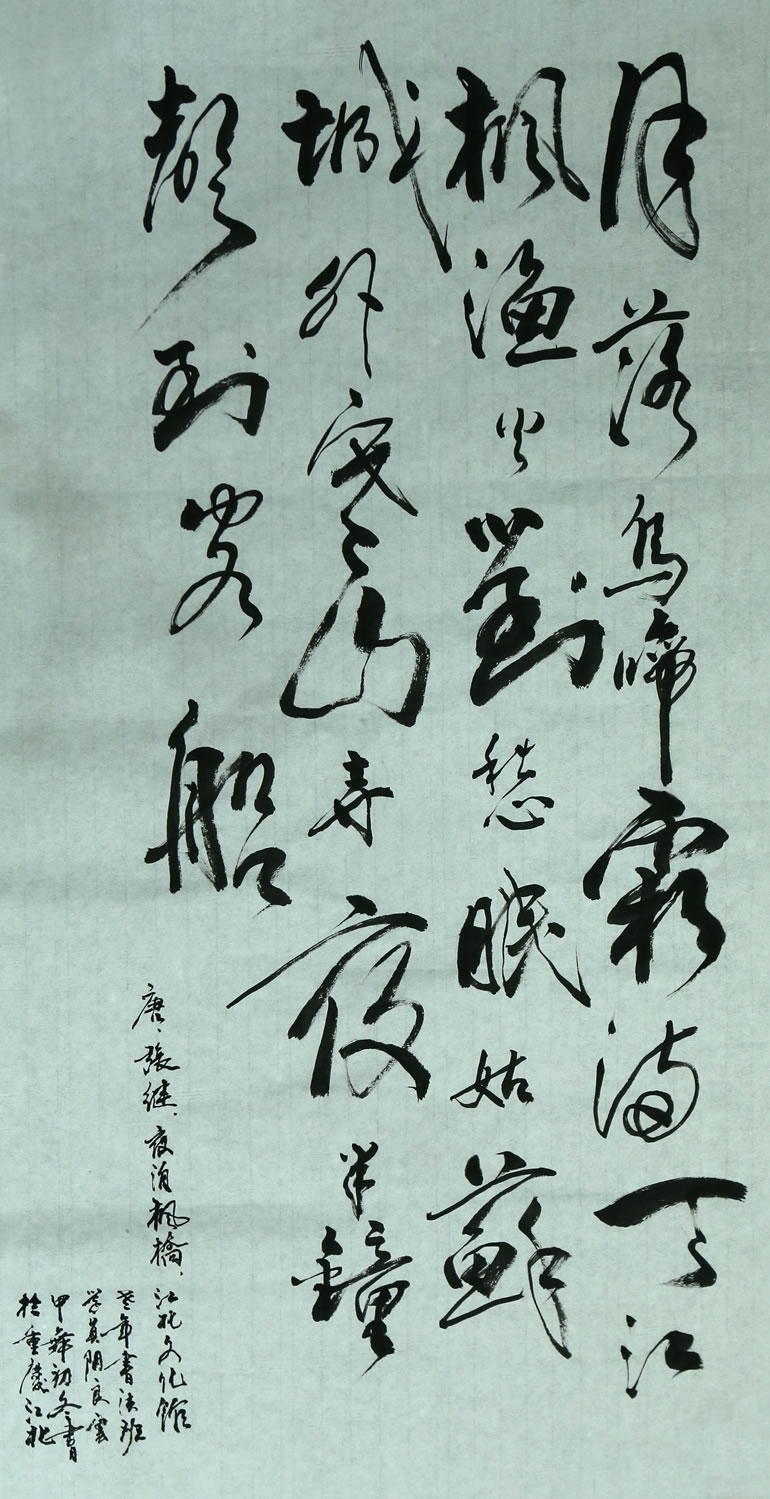 月落烏啼霜滿天江
枫渔火對愁眠姑蘇
城外寒山寺夜半鐘
聲到客船
唐、張继、夜泊枫橋、江北文化館
老年書法班
学員阴良雲
甲初冬書
於重慶江北